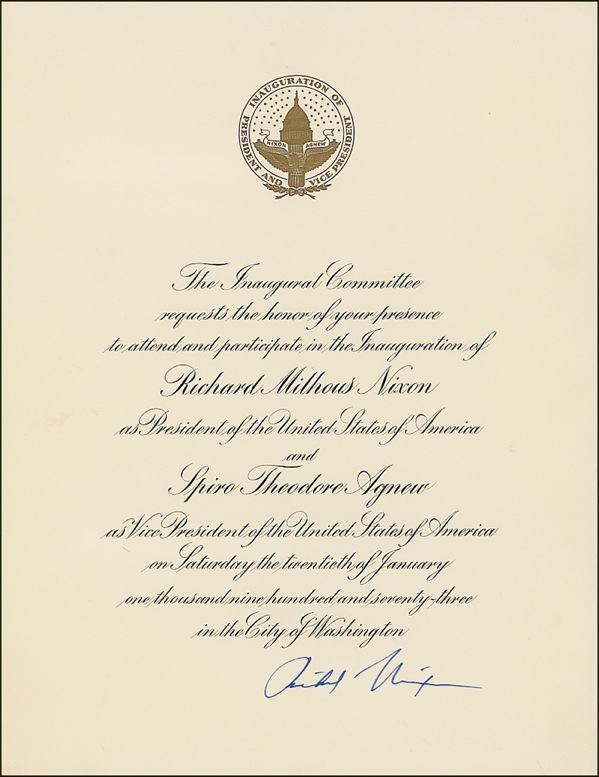 INAUGURATION OF
PRESIDENT AND VICE PRESIDENT
NIXON AGNEW
The Inaugural Committee
requests the honor of your presence
to attend and participate in the Inauguration of
Richard Milhous Nixon
as President of the United States of America
and
Spiro Theodore Agnew
as Vice President of the United States of America
on Saturday the twentieth of January
one thousand nine hundred and seventy-three
in the City of Washington
Richard Nixon